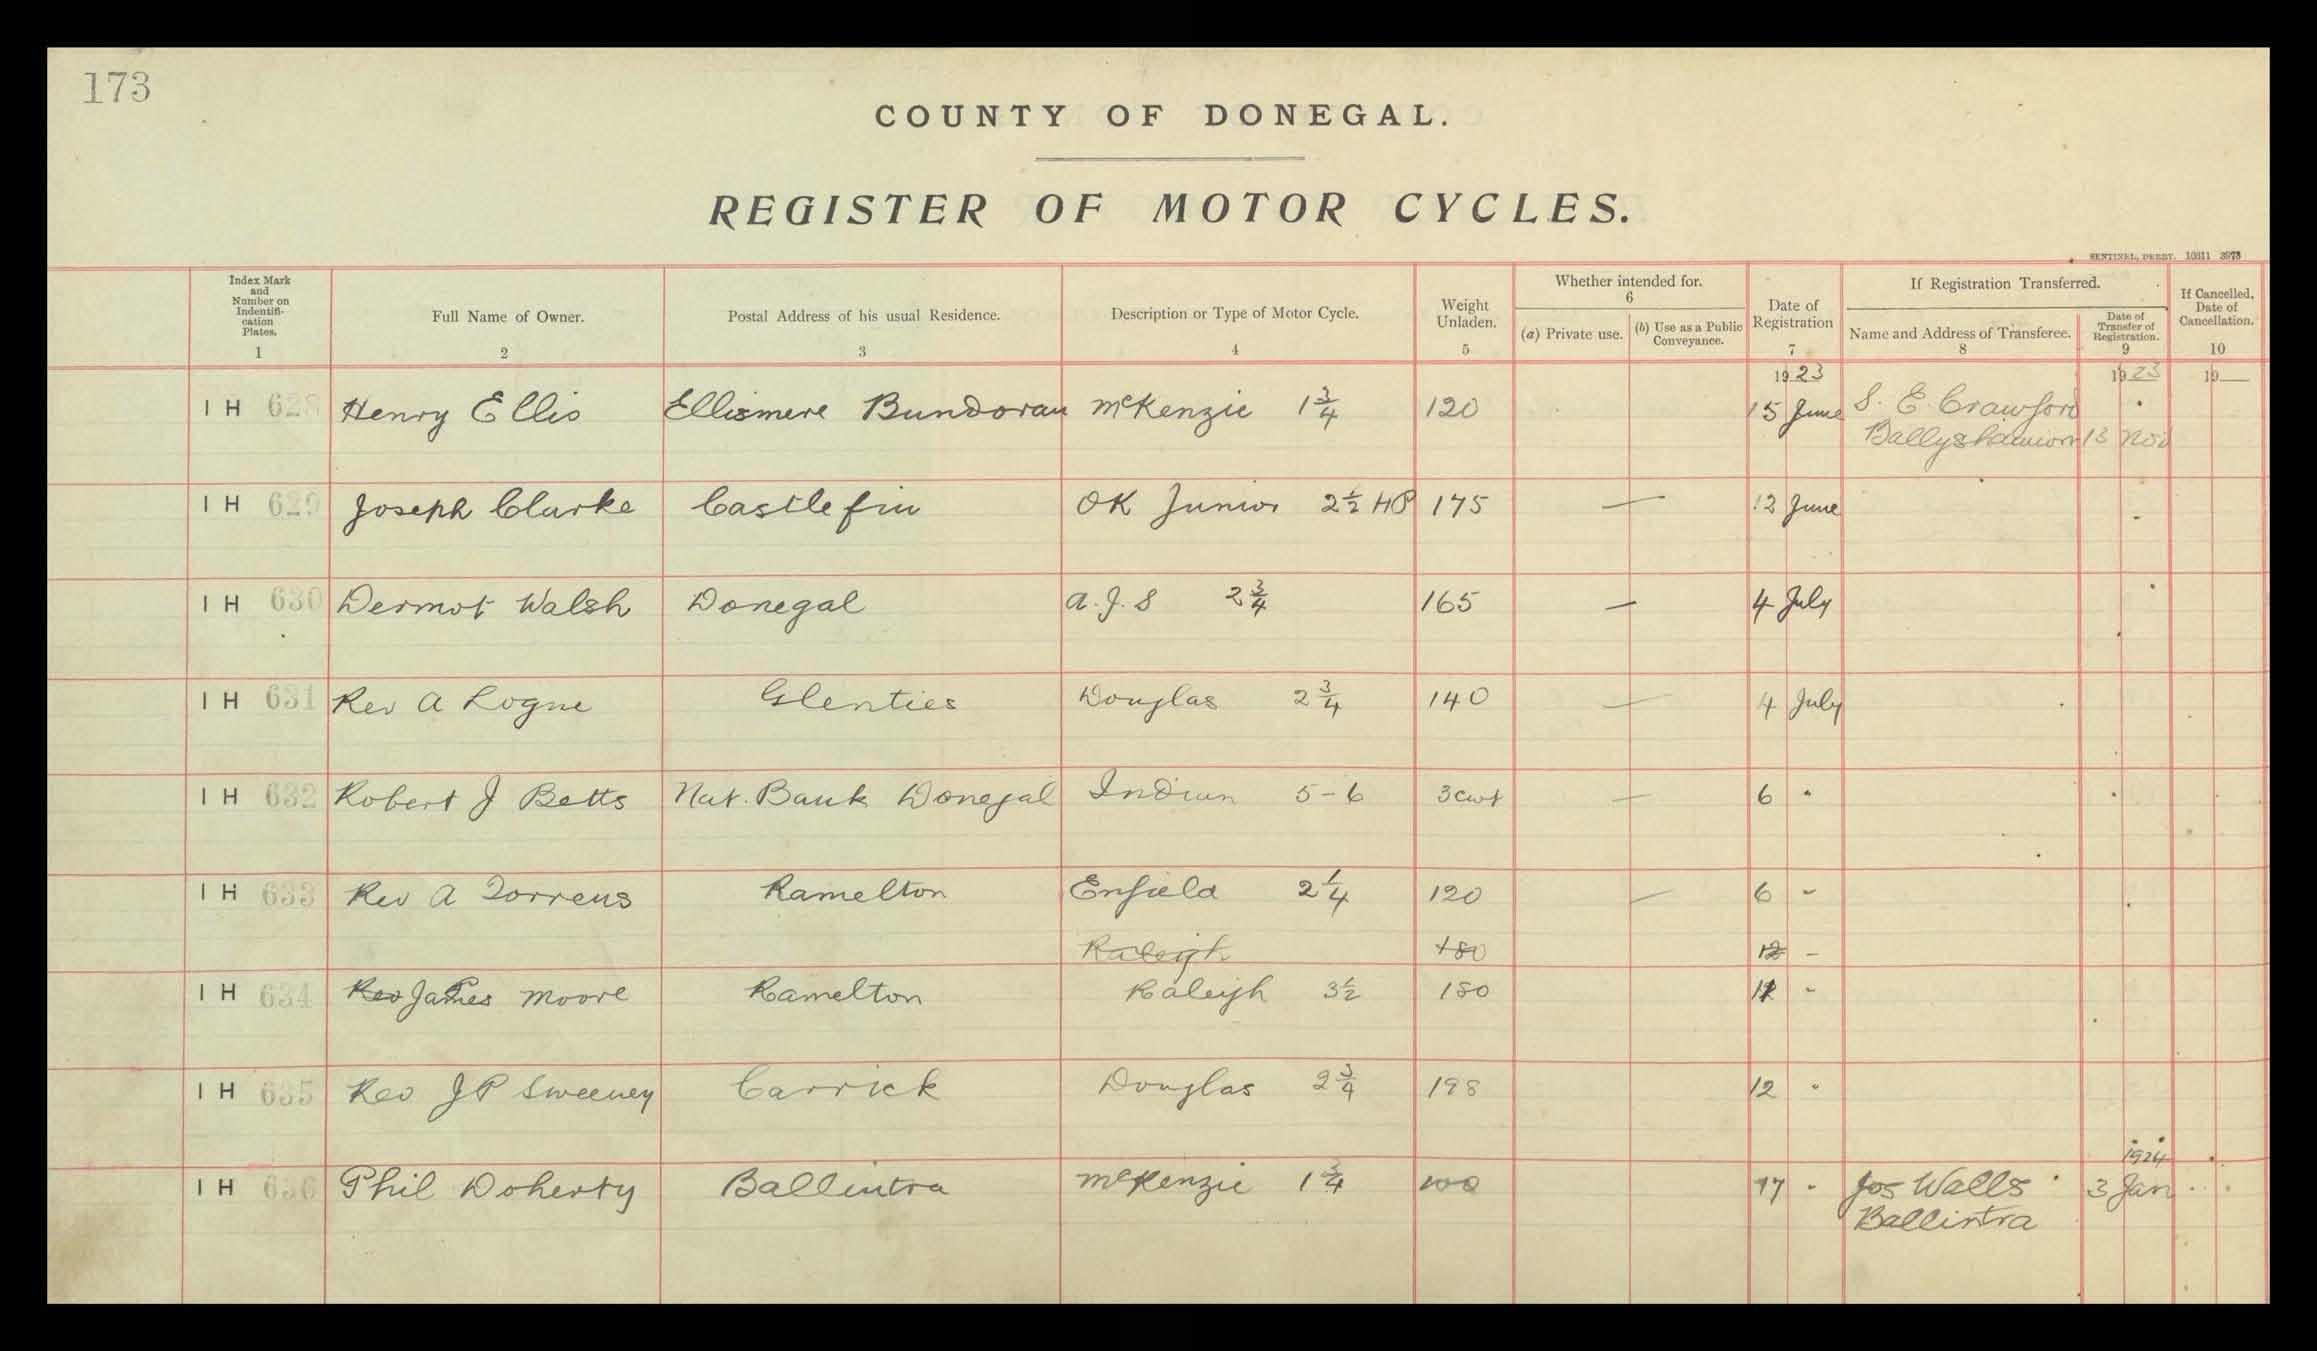 173
COUNTY OF DONEGAL.
REGISTER OF MOTOR CYCLES.
SENTINEL, DERRY. 10311 3973
Index Mark and Number on Indentifi-cation Plates. 1
Full Name of Owner. 2
Postal Address of his usual Residence. 3
Description or Type of Motor Cycle. 4
Weight Unladen. 5
Whether intended for. 6
(a) Private use.
(b) Use as a Public Conveyance.
Date of Registration 7
If Registration Transferred.
Name and Address of Transferee. 8
Date of Transfer of Registration. 9
If Cancelled, Date of Cancellation. 10
1923 1923 19
IH 628 Henry Ellis Ellismere Bundoran McKenzie 1 3/4 120 15 June S. E. Crawford
Ballyshannon 13 Nov
IH 629 Joseph Clarke Castlefin OK Junior 2 1/2 HP 175 — 12 June
IH 630 Dermot Walsh Donegal A.J.S 2 3/4 165 — 4 July
IH 631 Rev A Logue Glenties Douglas 2 3/4 140 — 4 July
IH 632 Robert J Betts Nat. Bank Donegal Indian 5-6 3cwt — 6 "
IH 633 Rev A Torrens Ramelton Enfield 2 1/4 120 — 6 "
Raleigh 180 12 "
IH 634 Rev James Moore Ramelton Raleigh 3 1/2 180 "
IH 635 Rev JP Sweeney Carrick Douglas 2 3/4 198 12 "
1924
IH 636 Phil Doherty Ballintra McKenzie 1 3/4 100 17 " Jos Walls 3 Jan
Ballintra